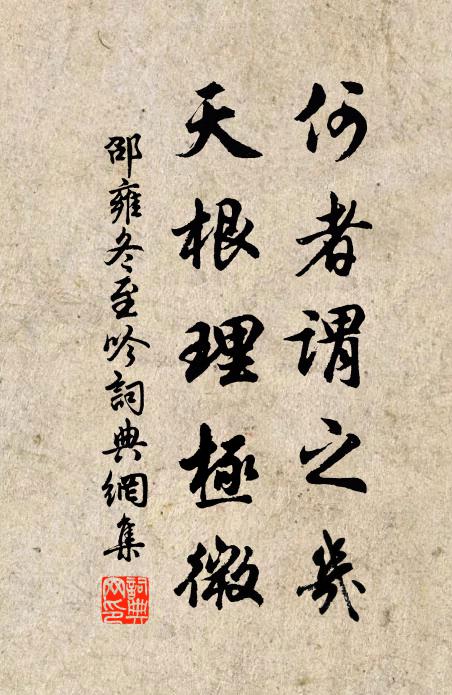 何者謂之幾
天根理極微
邵雍冬至吟詞典網集
詞典网印